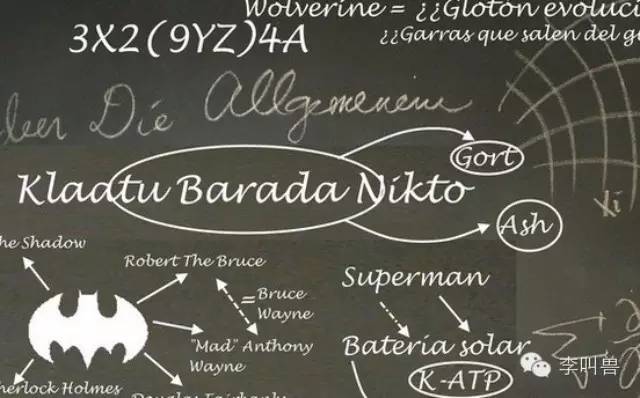 Wolverine = ¿¿Glotón evoluci
¿¿Garras que salen del g
3X2(9YZ)4A
ber Die Allgemeinen
Gort
Klaatu Barada Nikto
Ash
he Shadow
Robert The Bruce
= Bruce
Wayne
Superman
"Mad" Anthony
Wayne
Batería solar
K-ATP
herlock Holmes
Douglas Fairbanks
李叫兽